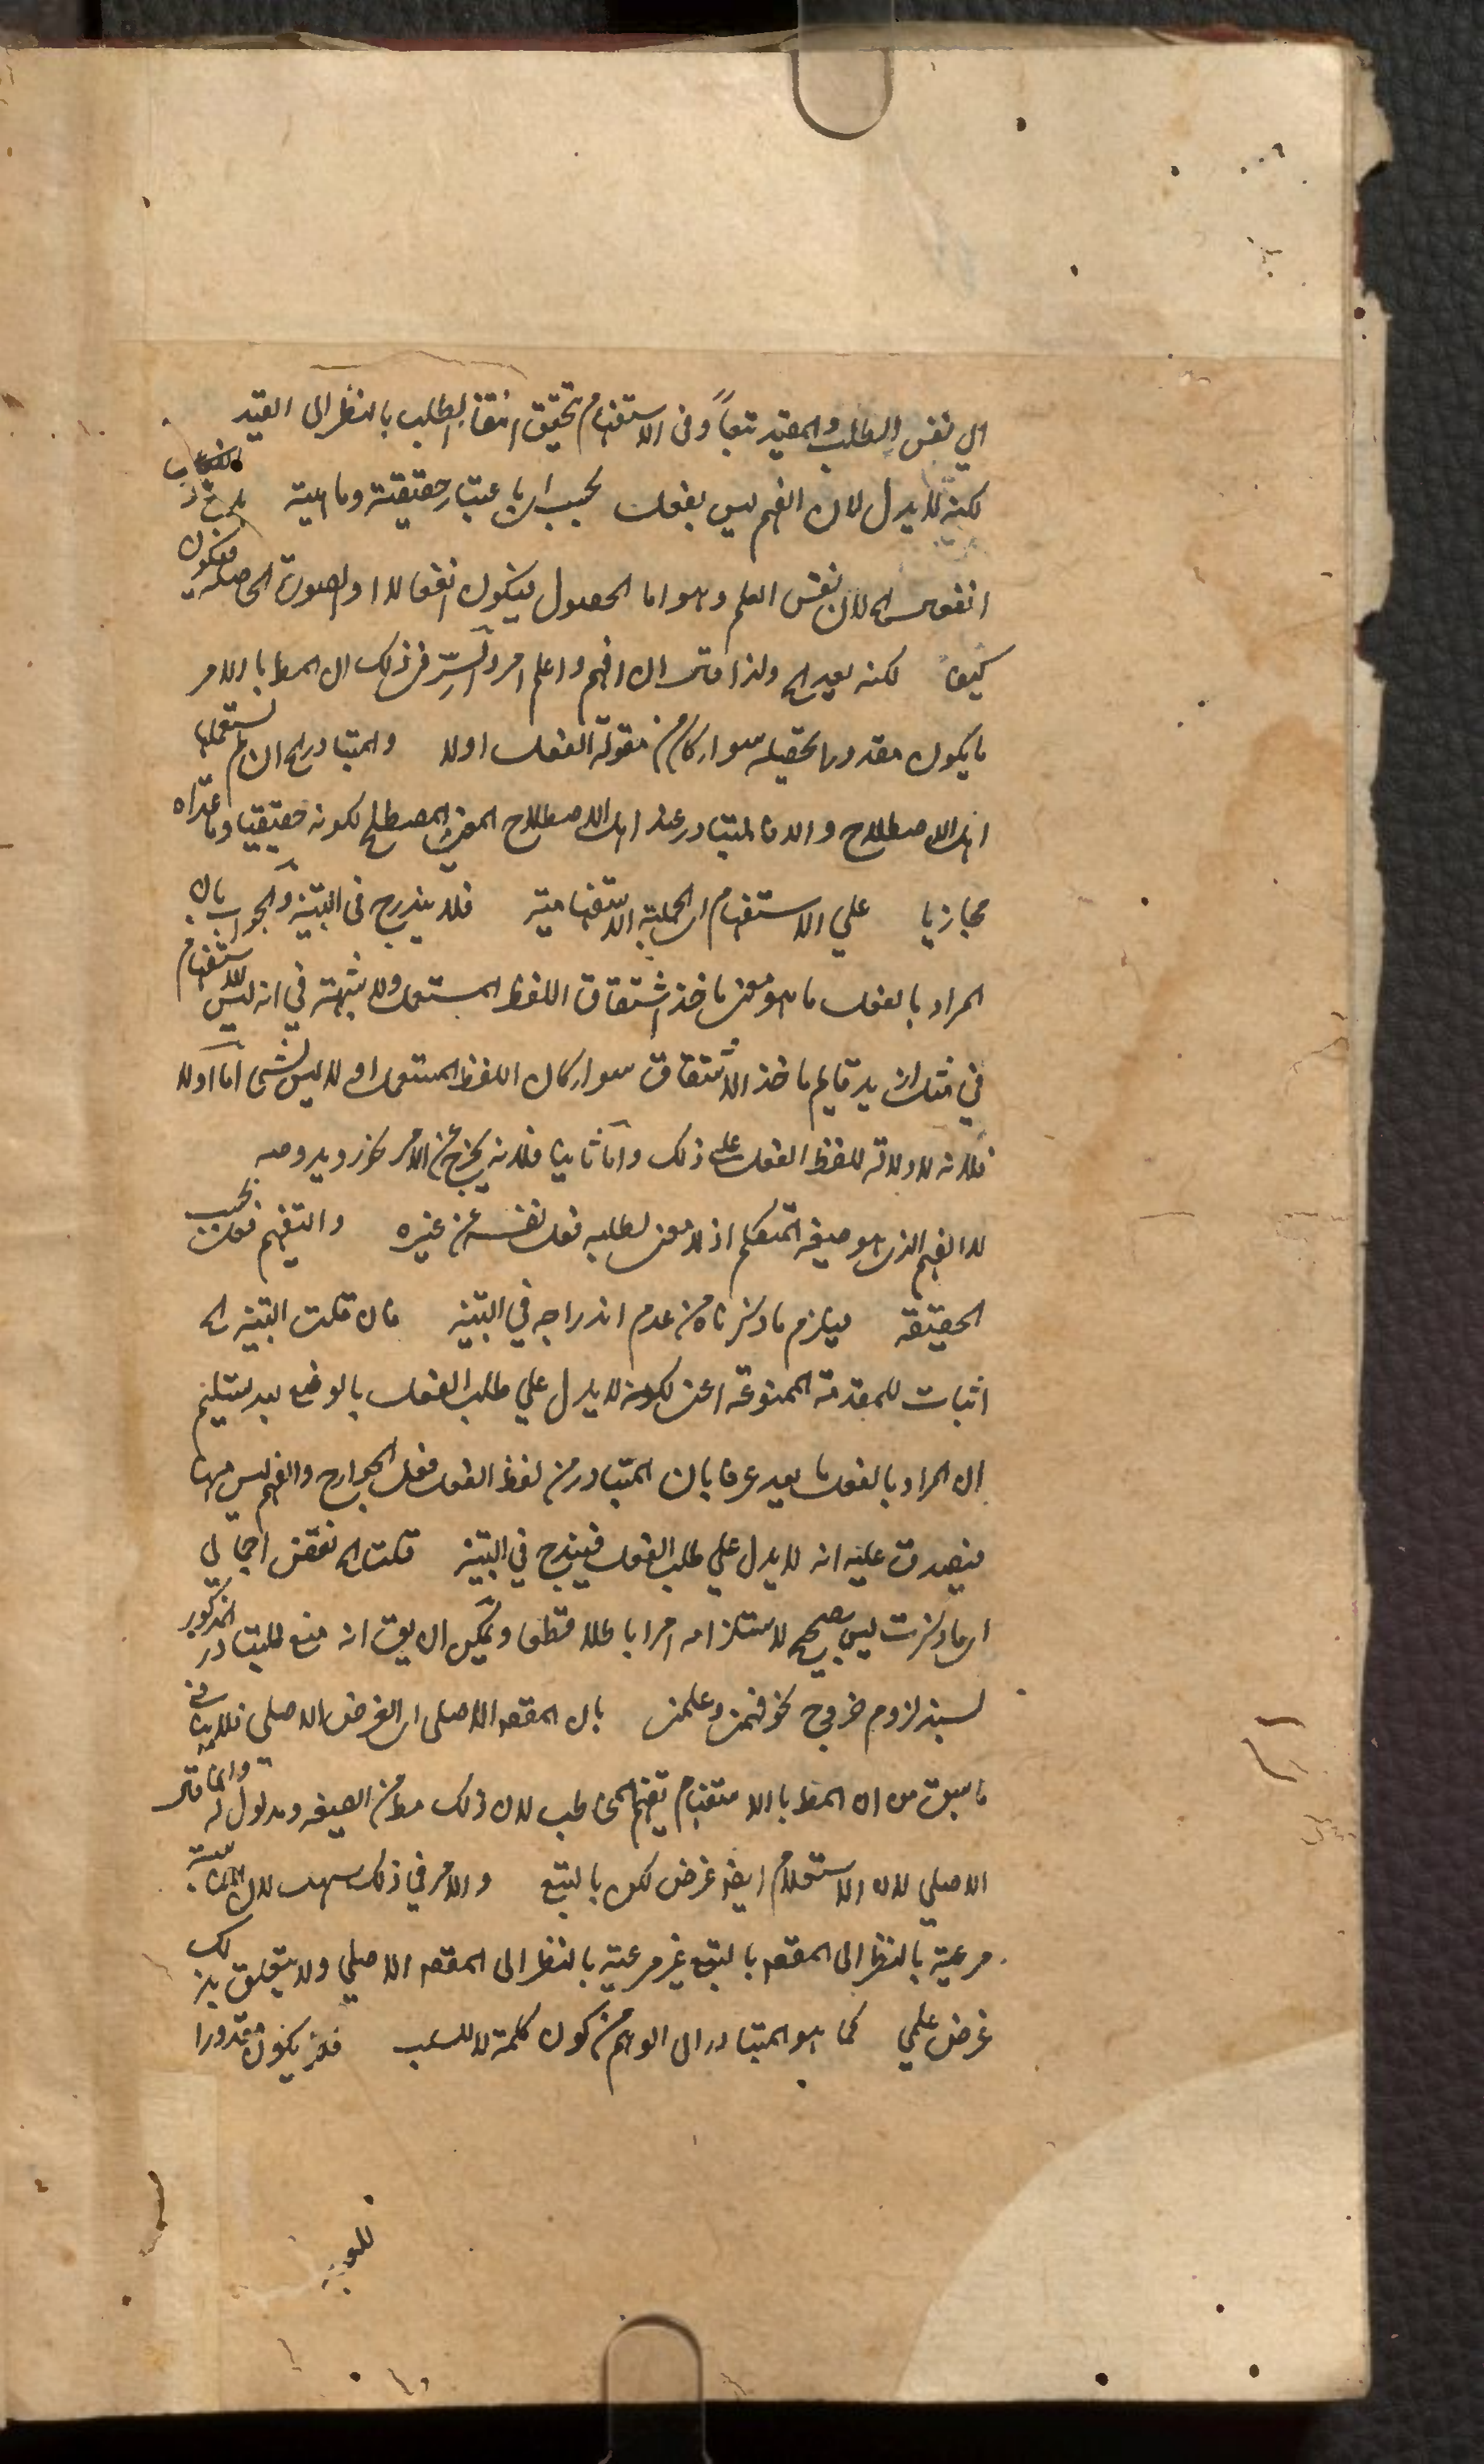 الى نفس الطلب والمقيد تبعاً وفى الاستفهام تحقيق انتفاء الطلب بالنظر الى القيد
لكنه لا يدل لان الفهم ليس بفعل بحسب اى باعتبار حقيقته وماهيته بل
انفعال لان نفس العلم وهو اما الحصول فيكون انفعالا او الصورة الحاصلة فيكون
كيفا لكنه لعدم ولذا قال ان افهم واعلم امر والسر فى ذلك ان المط بالامر
ما يكون مقدورا تحصيله سواء كان من مقولة الفعل اولا والمتبادر ان لم تستعملها
اهل الاصطلاح والا فالمتبادر عند اهل الاصطلاح المعنى المصطلح لكونه حقيقيا وما عداه
مجازيا على الاستفهام اى الجملة الاستفهامية فلا يندرج فى التنبيه والجواب بان
المراد بالفعل ما هو معنى ماخذ اشتقاق اللفظ المستعمل ولا شبهة في انه ليس للاستفهام
في مثل از يد قايم ماخذ الاشتقاق سواء كان اللفظ المستعمل او لا ليس بشئ اما اولا
فلانه لا دلالة للفظ الفعل على ذلك واما ثانيا فلانه يخرج عن الامر نحو رويد وصه
لا الفهم الذى هو صيغة المتكلم اذ لا معنى لطلبه فعل نفسه عن غيره والتفهيم فعل بحسب
الحقيقة فيلزم ما ذكرناه من عدم اندراجه في التنبيه فان قلت التنبيه
اثبات للمقدمة الممنوعة اعنى لكونه لا يدل على طلب الفعل بالوضع بعد تسليم
ان المراد بالفعل ما يعد عرفا بان المتبادر من لفظ الفعل فعل الجوارح والفهم ليس منها
فيصدق عليه انه لا يدل على طلب الفعل فيندرج في التنبيه قلت نقض اجمالي
اى ما ذكرت ليس بصحيح لاستلزامه امرا باطلا قطعا ويمكن ان يق انه منع للتبادر المذكور
لسند لزوم خروج نحو فهمنى وعلمنى بان المقصد الاصلى اى الغرض الاصلى فلا ينافى
ما سبق من ان المط بالاستفهام تفهيم المخاطب لان ذلك مط من الصيغه ومدلول له وانما قال
الاصلي لان الاستعلام ايضا غرض لكن بالتبع والامر في ذلك سهل لان المناسبة
مرعية بالنظر الى المقصد بالتبع غير مرعية بالنظر الى المقصد الاصلي ولا يتعلق بذلك
غرض علمي كما هو المتبادر الى الوهم من كون كلمة لا للسلب فلا يكون مقدورا